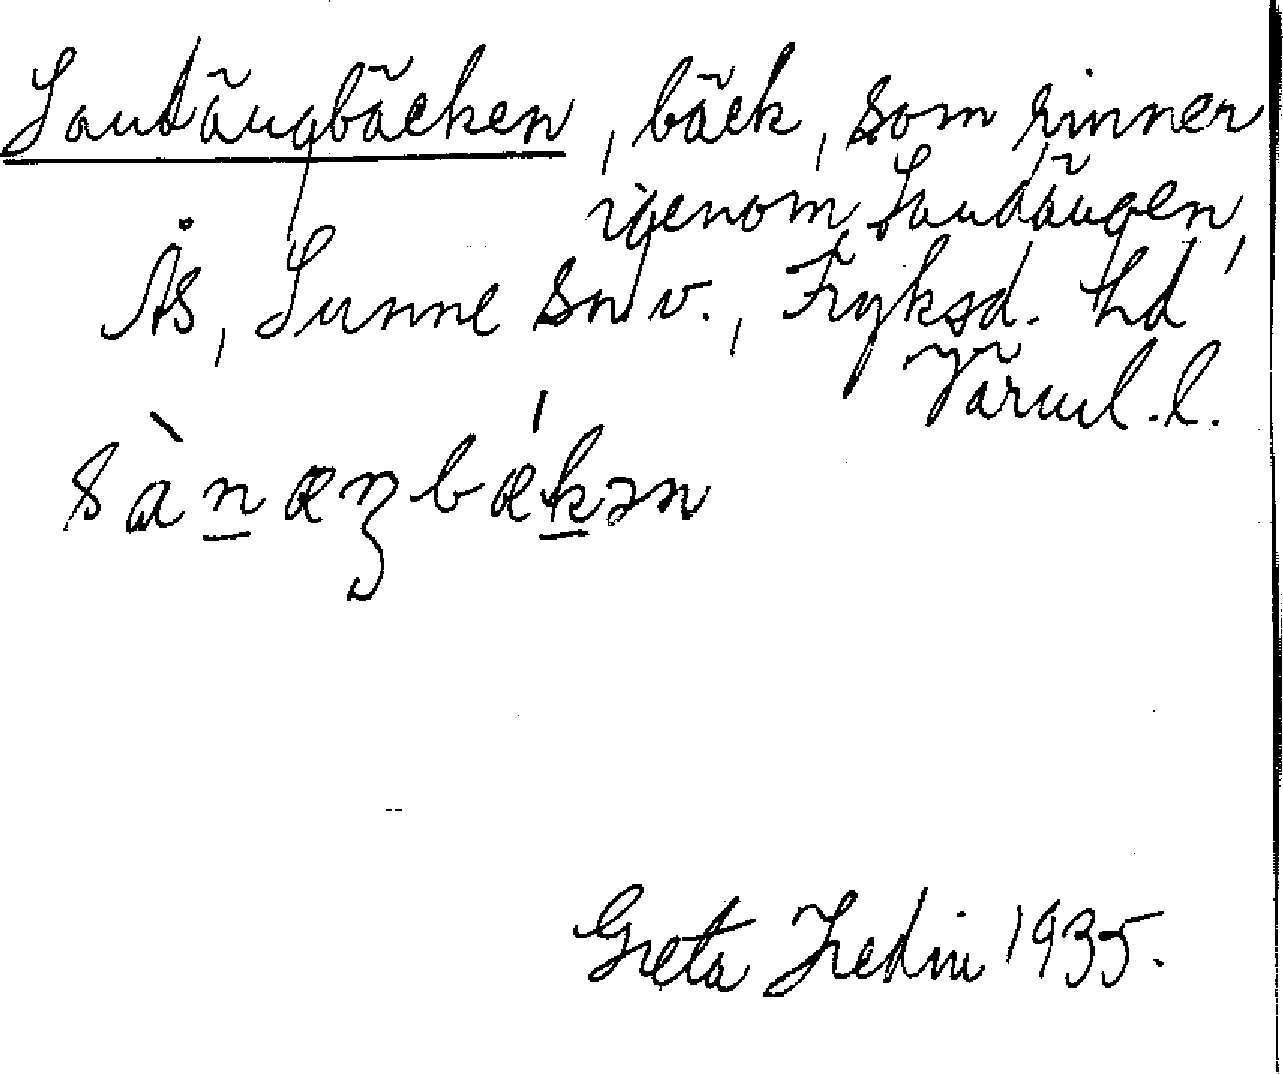 Sandängbäcken, bäck, som rinner
igenom Sandängen,
Ås, Sunne sn v., Fryksd. hd
Värml. l.
sànæŋbækən
Greta Hedin 1935.